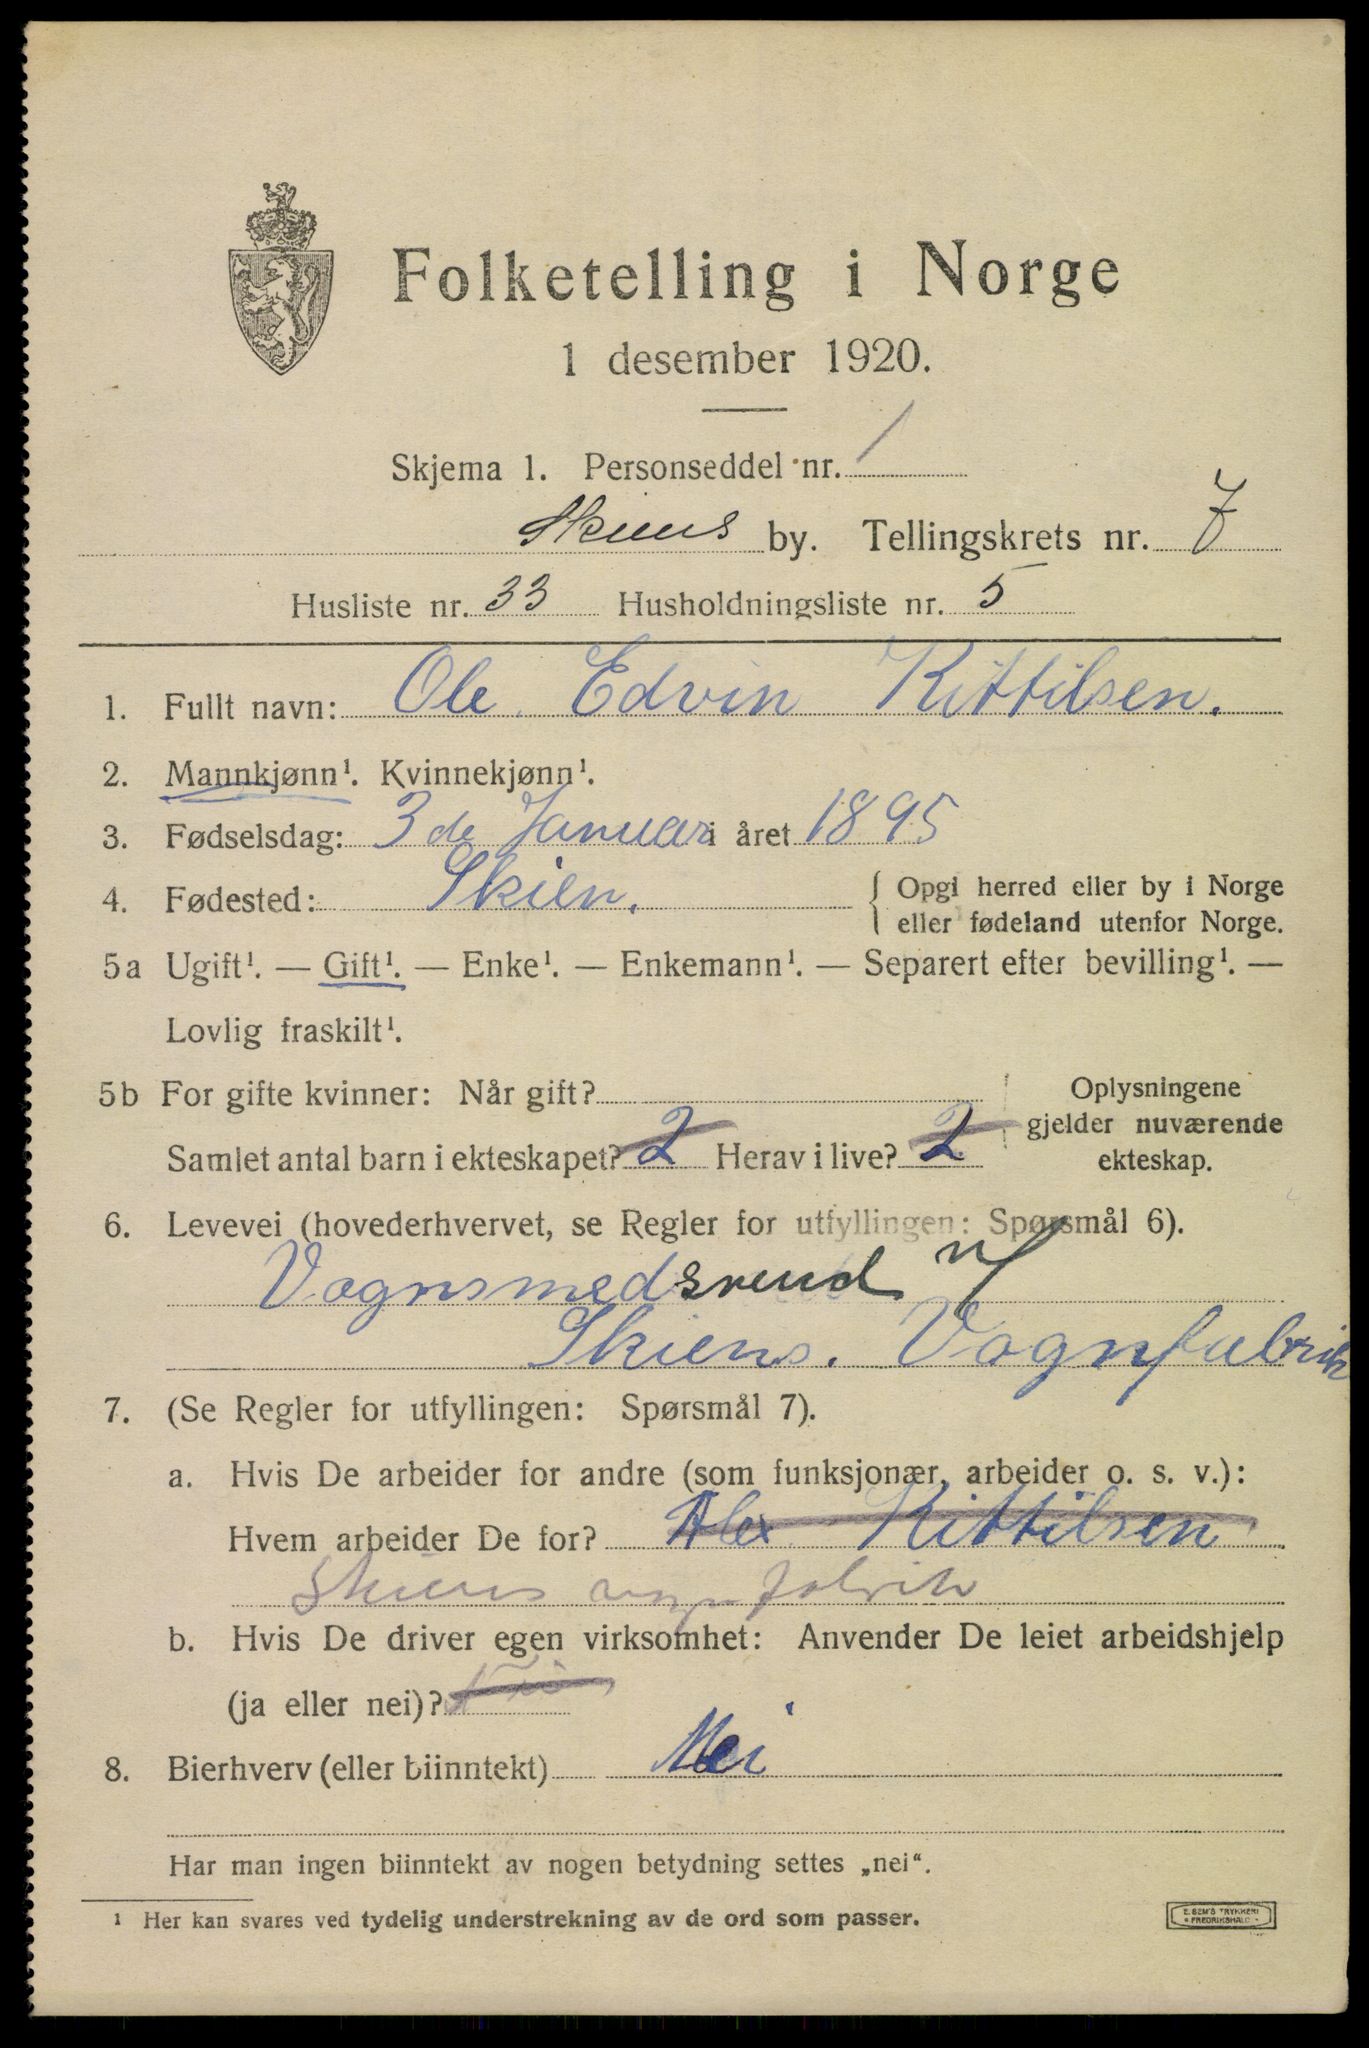 Folketelling i Norge
1 desember 1920.
Skjema 1. Personseddel nr. 1
Skiens by. Tellingskrets nr. 7
Husliste nr. 33 Husholdningsliste nr. 5
1. Fullt navn: Ole Edvin Kittilsen.
2. Mannkjønn¹. Kvinnekjønn¹.
3. Fødselsdag: 3de Januar i året 1895
4. Fødested: Skien. { Opgi herred eller by i Norge
eller fødeland utenfor Norge.
5a Ugift¹. — Gift¹. — Enke¹. — Enkemann¹. — Separert efter bevilling¹. —
Lovlig fraskilt¹.
5b For gifte kvinner: Når gift?
Samlet antal barn i ekteskapet? 2 Herav i live? 2
Oplysningene
gjelder nuværende
ekteskap.
6. Levevei (hovederhvervet, se Regler for utfyllingen: Spørsmål 6).
Vognsmedsvend v/
Skiens. Vognfabrik
7. (Se Regler for utfyllingen: Spørsmål 7).
a. Hvis De arbeider for andre (som funksjonær, arbeider o. s. v.):
Hvem arbeider De for? Alex Kittilsen
Skiens vognfabrik
b. Hvis De driver egen virksomhet: Anvender De leiet arbeidshjelp
(ja eller nei)?
8. Bierhverv (eller biinntekt) Nei
Har man ingen biinntekt av nogen betydning settes „nei“.
¹ Her kan svares ved tydelig understrekning av de ord som passer.
E. SEM'S TRYKKERI
FREDRIKSHALD